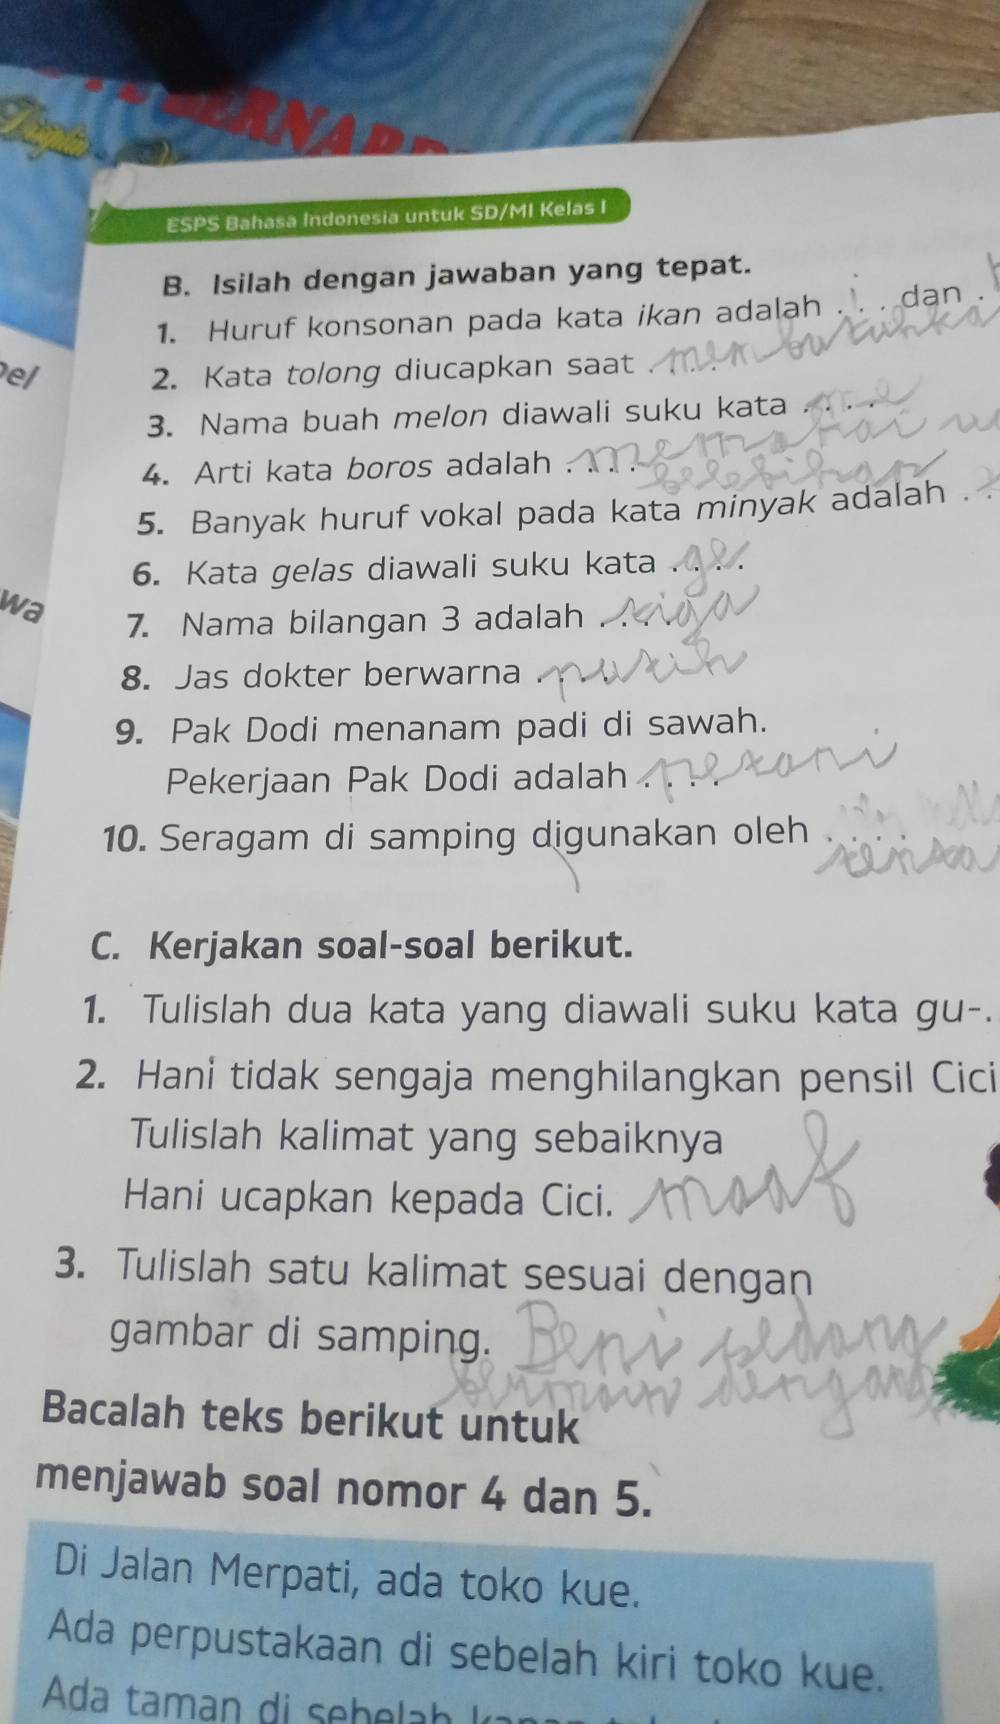 ESPS Bahasa Indonesia untuk SD/MI Kelas I
B. Isilah dengan jawaban yang tepat.
1. Huruf konsonan pada kata ikan adalah . . . dan .
2. Kata tolong diucapkan saat . . . .
3. Nama buah melon diawali suku kata . . . . me
4. Arti kata boros adalah . . . .
5. Banyak huruf vokal pada kata minyak adalah . .
6. Kata gelas diawali suku kata . . . . ge
7. Nama bilangan 3 adalah . . . . tiga
wa
8. Jas dokter berwarna . . . . putih
9. Pak Dodi menanam padi di sawah.
Pekerjaan Pak Dodi adalah . . . . petani
10. Seragam di samping digunakan oleh . . . .
C. Kerjakan soal-soal berikut.
1. Tulislah dua kata yang diawali suku kata gu-.
2. Hani tidak sengaja menghilangkan pensil Cici
Tulislah kalimat yang sebaiknya
Hani ucapkan kepada Cici. maaf
3. Tulislah satu kalimat sesuai dengan
gambar di samping. Beni sedang
bermain dengan
Bacalah teks berikut untuk
menjawab soal nomor 4 dan 5.
Di Jalan Merpati, ada toko kue.
Ada perpustakaan di sebelah kiri toko kue.
Ada taman di sebelah